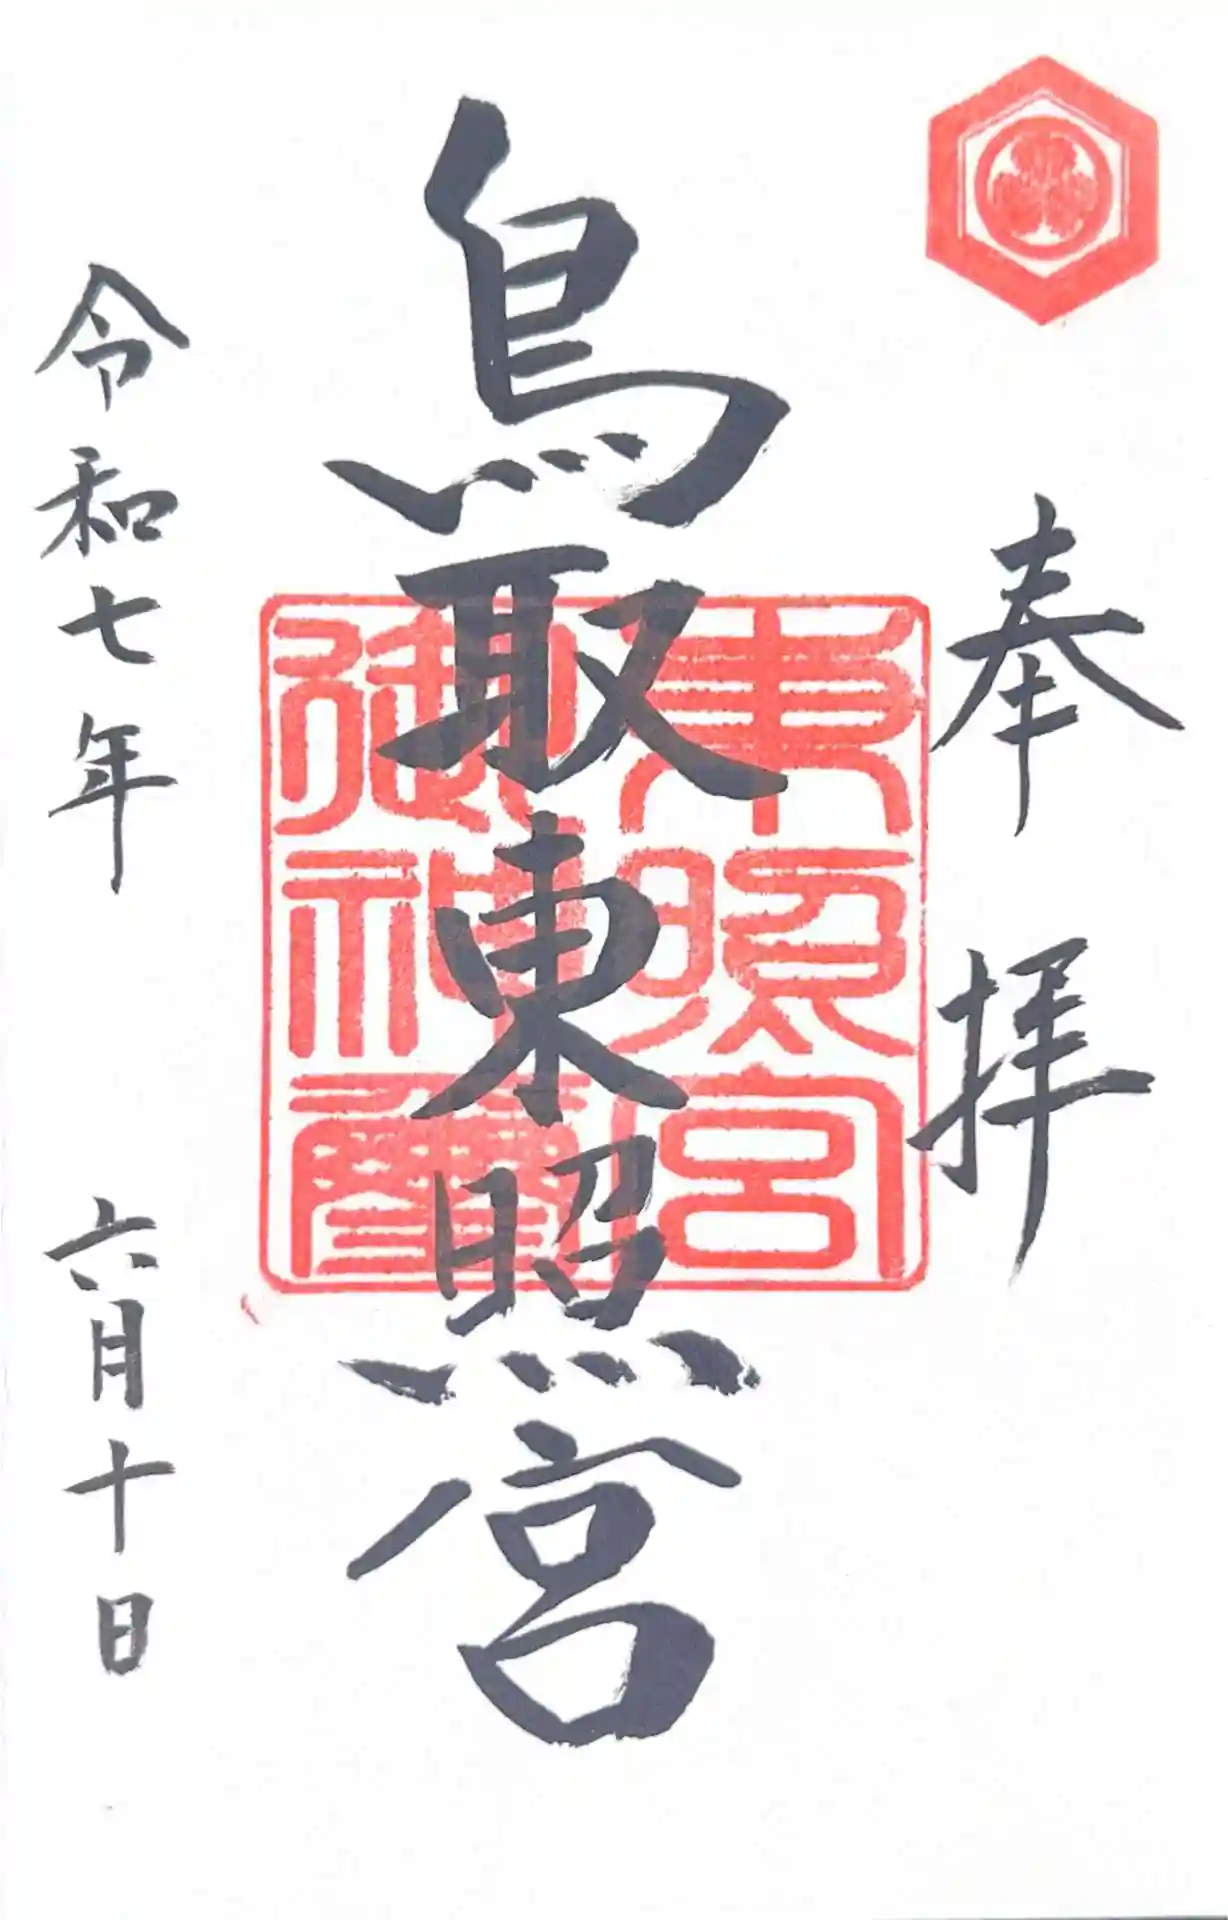 奉拝
鳥取東照宮
東照宮
御神璽
令和七年 六月十日